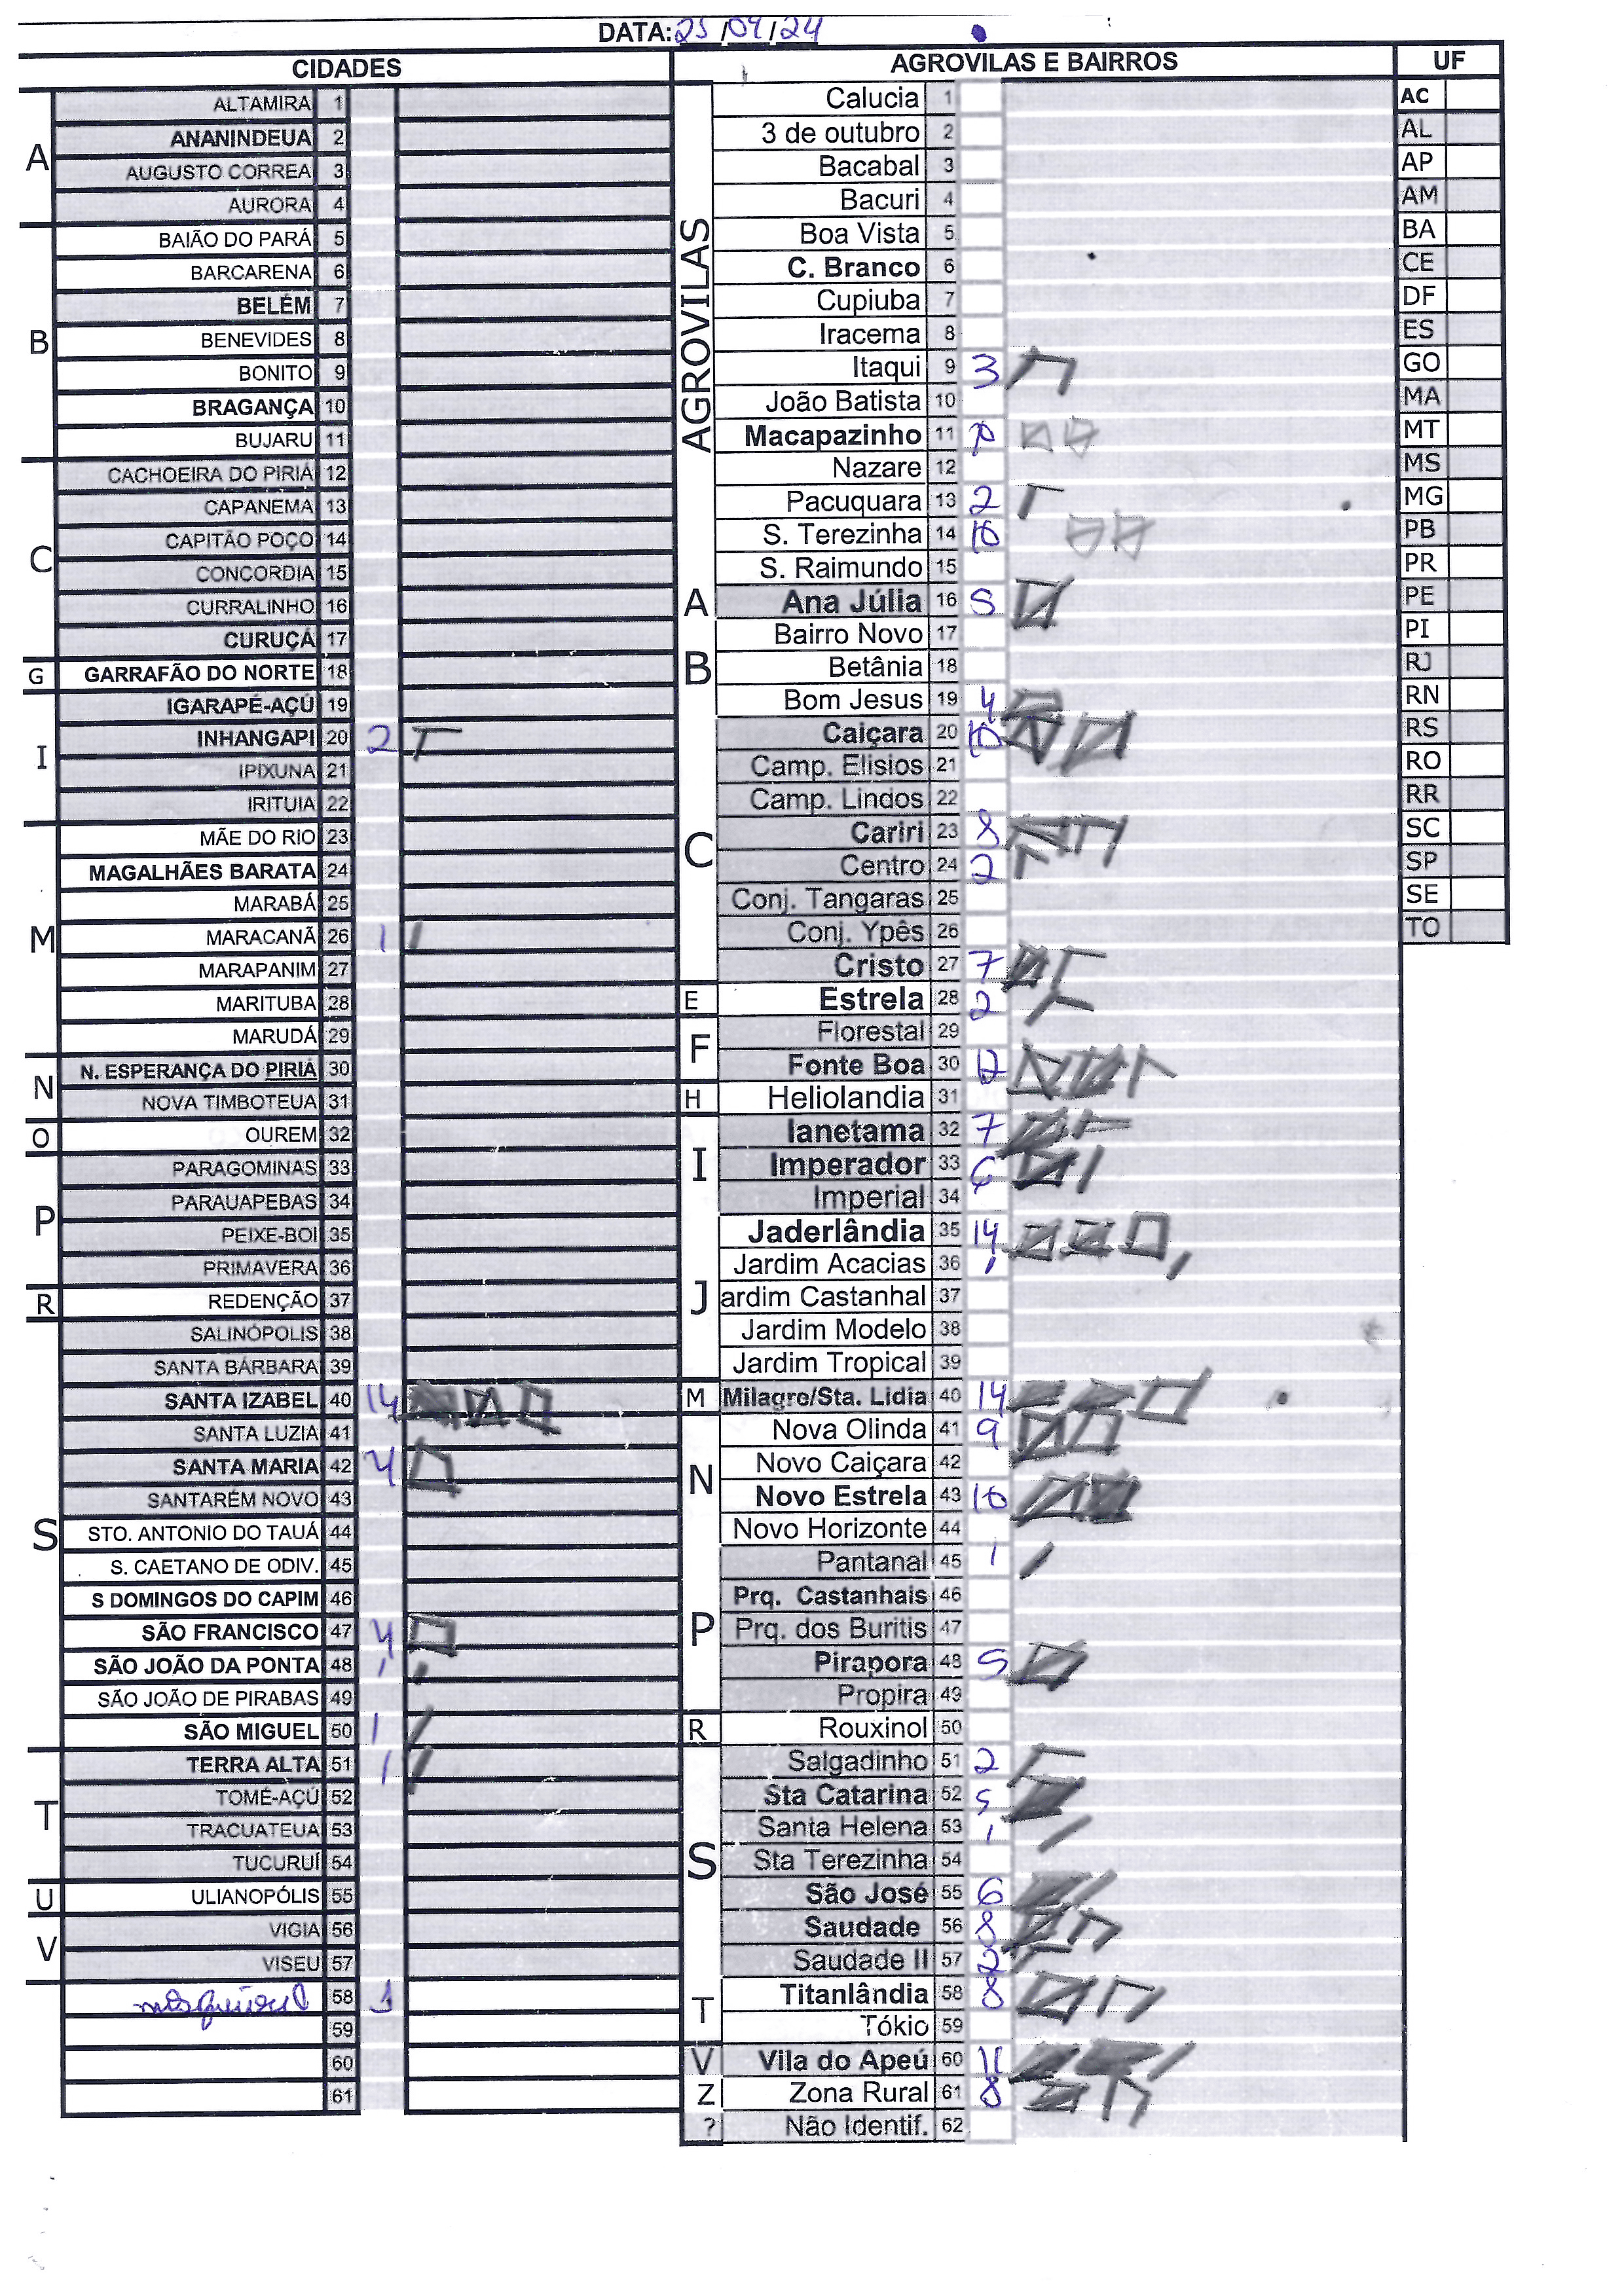 DATA: 25/04/24
CIDADES
A
ALTAMIRA 1
ANANINDEUA 2
AUGUSTO CORREA 3
AURORA 4
B
BAIÃO DO PARÁ 5
BARCARENA 6
BELÉM 7
BENEVIDES 8
BONITO 9
BRAGANÇA 10
BUJARU 11
C
CACHOEIRA DO PIRIÁ 12
CAPANEMA 13
CAPITÃO POÇO 14
CONCORDIA 15
CURRALINHO 16
CURUÇÁ 17
G
GARRAFÃO DO NORTE 18
I
IGARAPÉ-AÇÚ 19
INHANGAPI 20 2
IPIXUNA 21
IRITUIA 22
M
MÃE DO RIO 23
MAGALHÃES BARATA 24
MARABÁ 25
MARACANÃ 26 1
MARAPANIM 27
MARITUBA 28
MARUDÁ 29
N
N. ESPERANÇA DO PIRIÁ 30
NOVA TIMBOTEUA 31
O
OUREM 32
P
PARAGOMINAS 33
PARAUAPEBAS 34
PEIXE-BOI 35
PRIMAVERA 36
R
REDENÇÃO 37
S
SALINÓPOLIS 38
SANTA BÁRBARA 39
SANTA IZABEL 40 14
SANTA LUZIA 41
SANTA MARIA 42 4
SANTARÉM NOVO 43
STO. ANTONIO DO TAUÁ 44
S. CAETANO DE ODIV. 45
S DOMINGOS DO CAPIM 46
SÃO FRANCISCO 47 4
SÃO JOÃO DA PONTA 48 1
SÃO JOÃO DE PIRABAS 49
SÃO MIGUEL 50 1
T
TERRA ALTA 51 1
TOMÉ-AÇÚ 52
TRACUATEUA 53
TUCURUÍ 54
U
ULIANOPÓLIS 55
V
VIGIA 56
VISEU 57
58 1
59
60
61
AGROVILAS E BAIRROS
AGROVILAS
Calucia 1
3 de outubro 2
Bacabal 3
Bacuri 4
Boa Vista 5
C. Branco 6
Cupiuba 7
Iracema 8
Itaqui 9 3
João Batista 10
Macapazinho 11 10
Nazare 12
Pacuquara 13 2
S. Terezinha 14 10
S. Raimundo 15
A
Ana Júlia 16 5
B
Bairro Novo 17
Betânia 18
Bom Jesus 19 4
C
Caiçara 20 10
Camp. Elisios 21
Camp. Lindos 22
Cariri 23 8
Centro 24 2
Conj. Tangaras 25
Conj. Ypês 26
Cristo 27 7
E
Estrela 28 2
F
Florestal 29
Fonte Boa 30 12
H
Heliolandia 31
I
Ianetama 32 7
Imperador 33 6
Imperial 34
J
Jaderlândia 35 14
Jardim Acacias 36 1
ardim Castanhal 37
Jardim Modelo 38
Jardim Tropical 39
M
Milagre/Sta. Lidia 40 14
N
Nova Olinda 41 9
Novo Caiçara 42
Novo Estrela 43 10
Novo Horizonte 44
P
Pantanal 45 1
Prq. Castanhais 46
Prq. dos Buritis 47
Pirapora 48 5
Propira 49
R
Rouxinol 50
S
Salgadinho 51 2
Sta Catarina 52 5
Santa Helena 53 1
Sta Terezinha 54
São José 55 6
Saudade 56 8
Saudade II 57 2
T
Titanlândia 58 8
Tókio 59
V
Vila do Apeú 60 11
Z
Zona Rural 61 8
?
Não Identif. 62
UF
AC
AL
AP
AM
BA
CE
DF
ES
GO
MA
MT
MS
MG
PB
PR
PE
PI
RJ
RN
RS
RO
RR
SC
SP
SE
TO